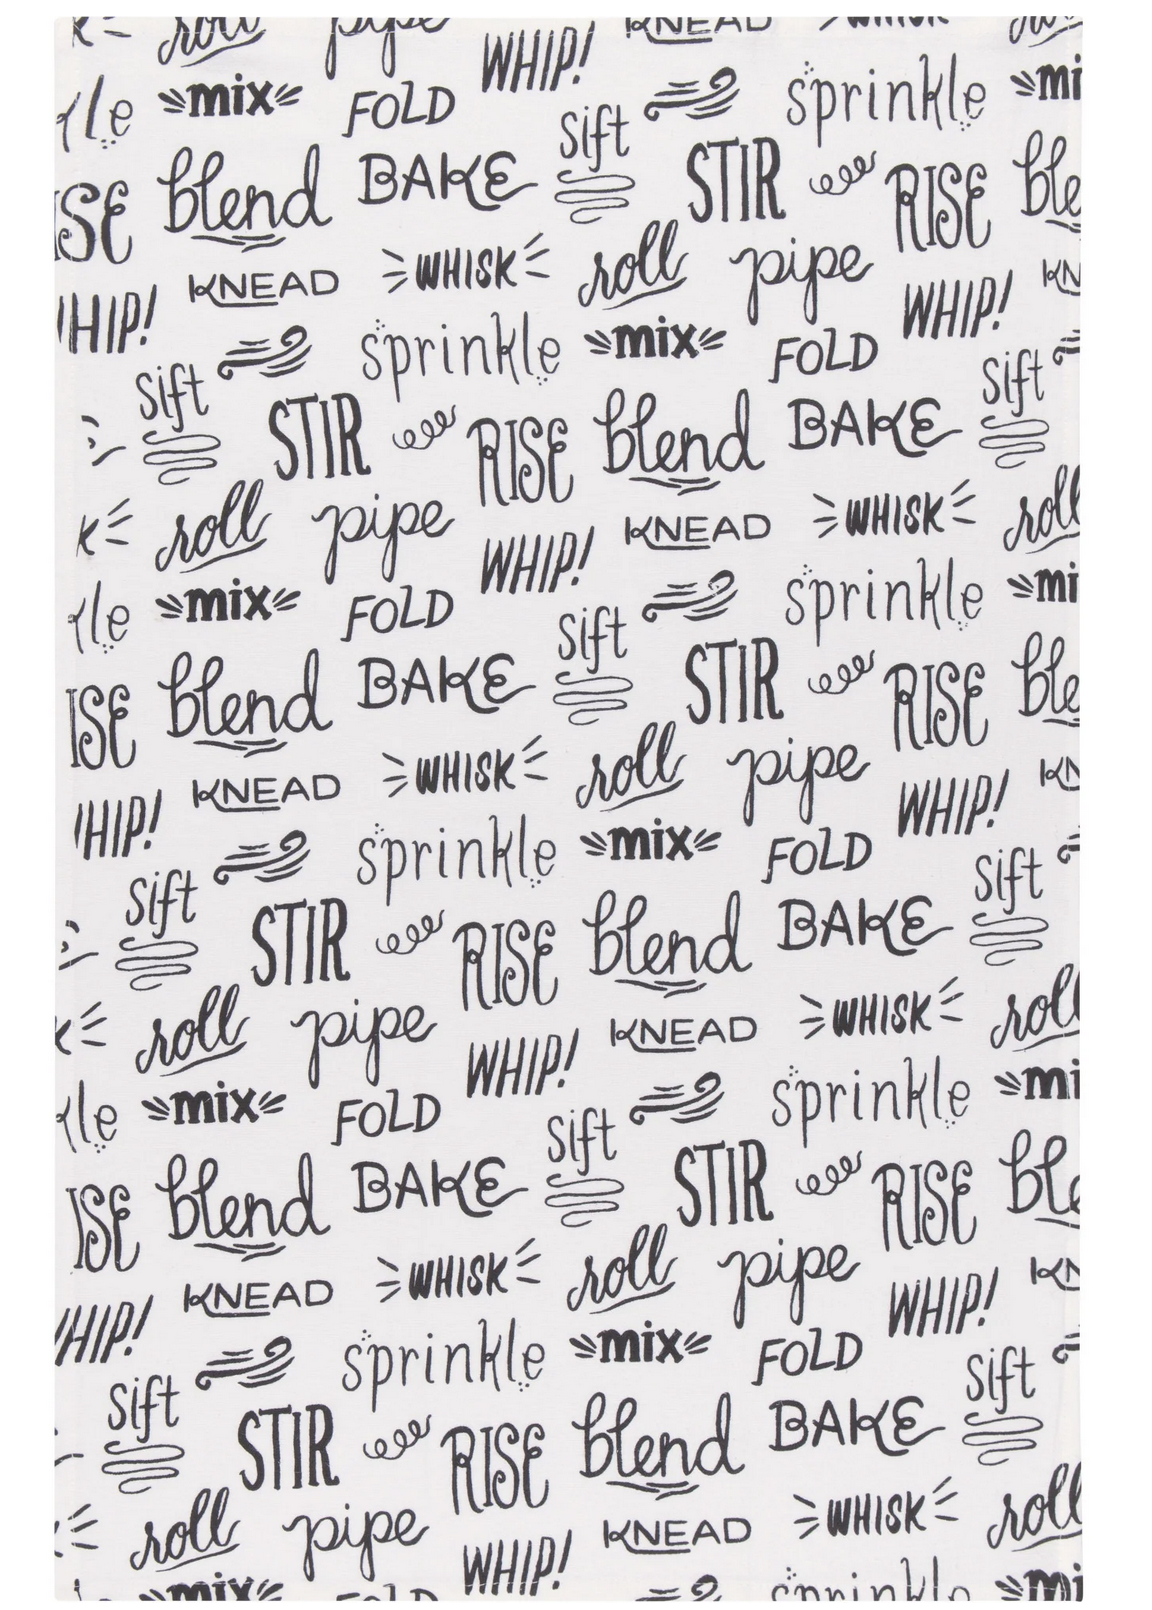 roll pipe WHIP! KNEAD WHISK
mix FOLD sift sprinkle mi
blend BAKE STIR RISE ble
KNEAD WHISK roll pipe WHIP! KN
HIP! sprinkle mix FOLD
sift STIR RISE blend BAKE sift
K roll pipe WHIP! KNEAD WHISK roll
mix FOLD sift sprinkle mi
ISE blend BAKE STIR RISE ble
KNEAD WHISK roll pipe WHIP! KN
HIP! sprinkle mix FOLD
sift STIR RISE blend BAKE sift
roll pipe WHIP! KNEAD WHISK roll
mix FOLD sift sprinkle mi
ISE blend BAKE STIR RISE ble
KNEAD WHISK roll pipe WHIP! KN
HIP! sprinkle mix FOLD
sift STIR RISE blend BAKE sift
roll pipe WHIP! KNEAD WHISK roll
mix sprinkle mi